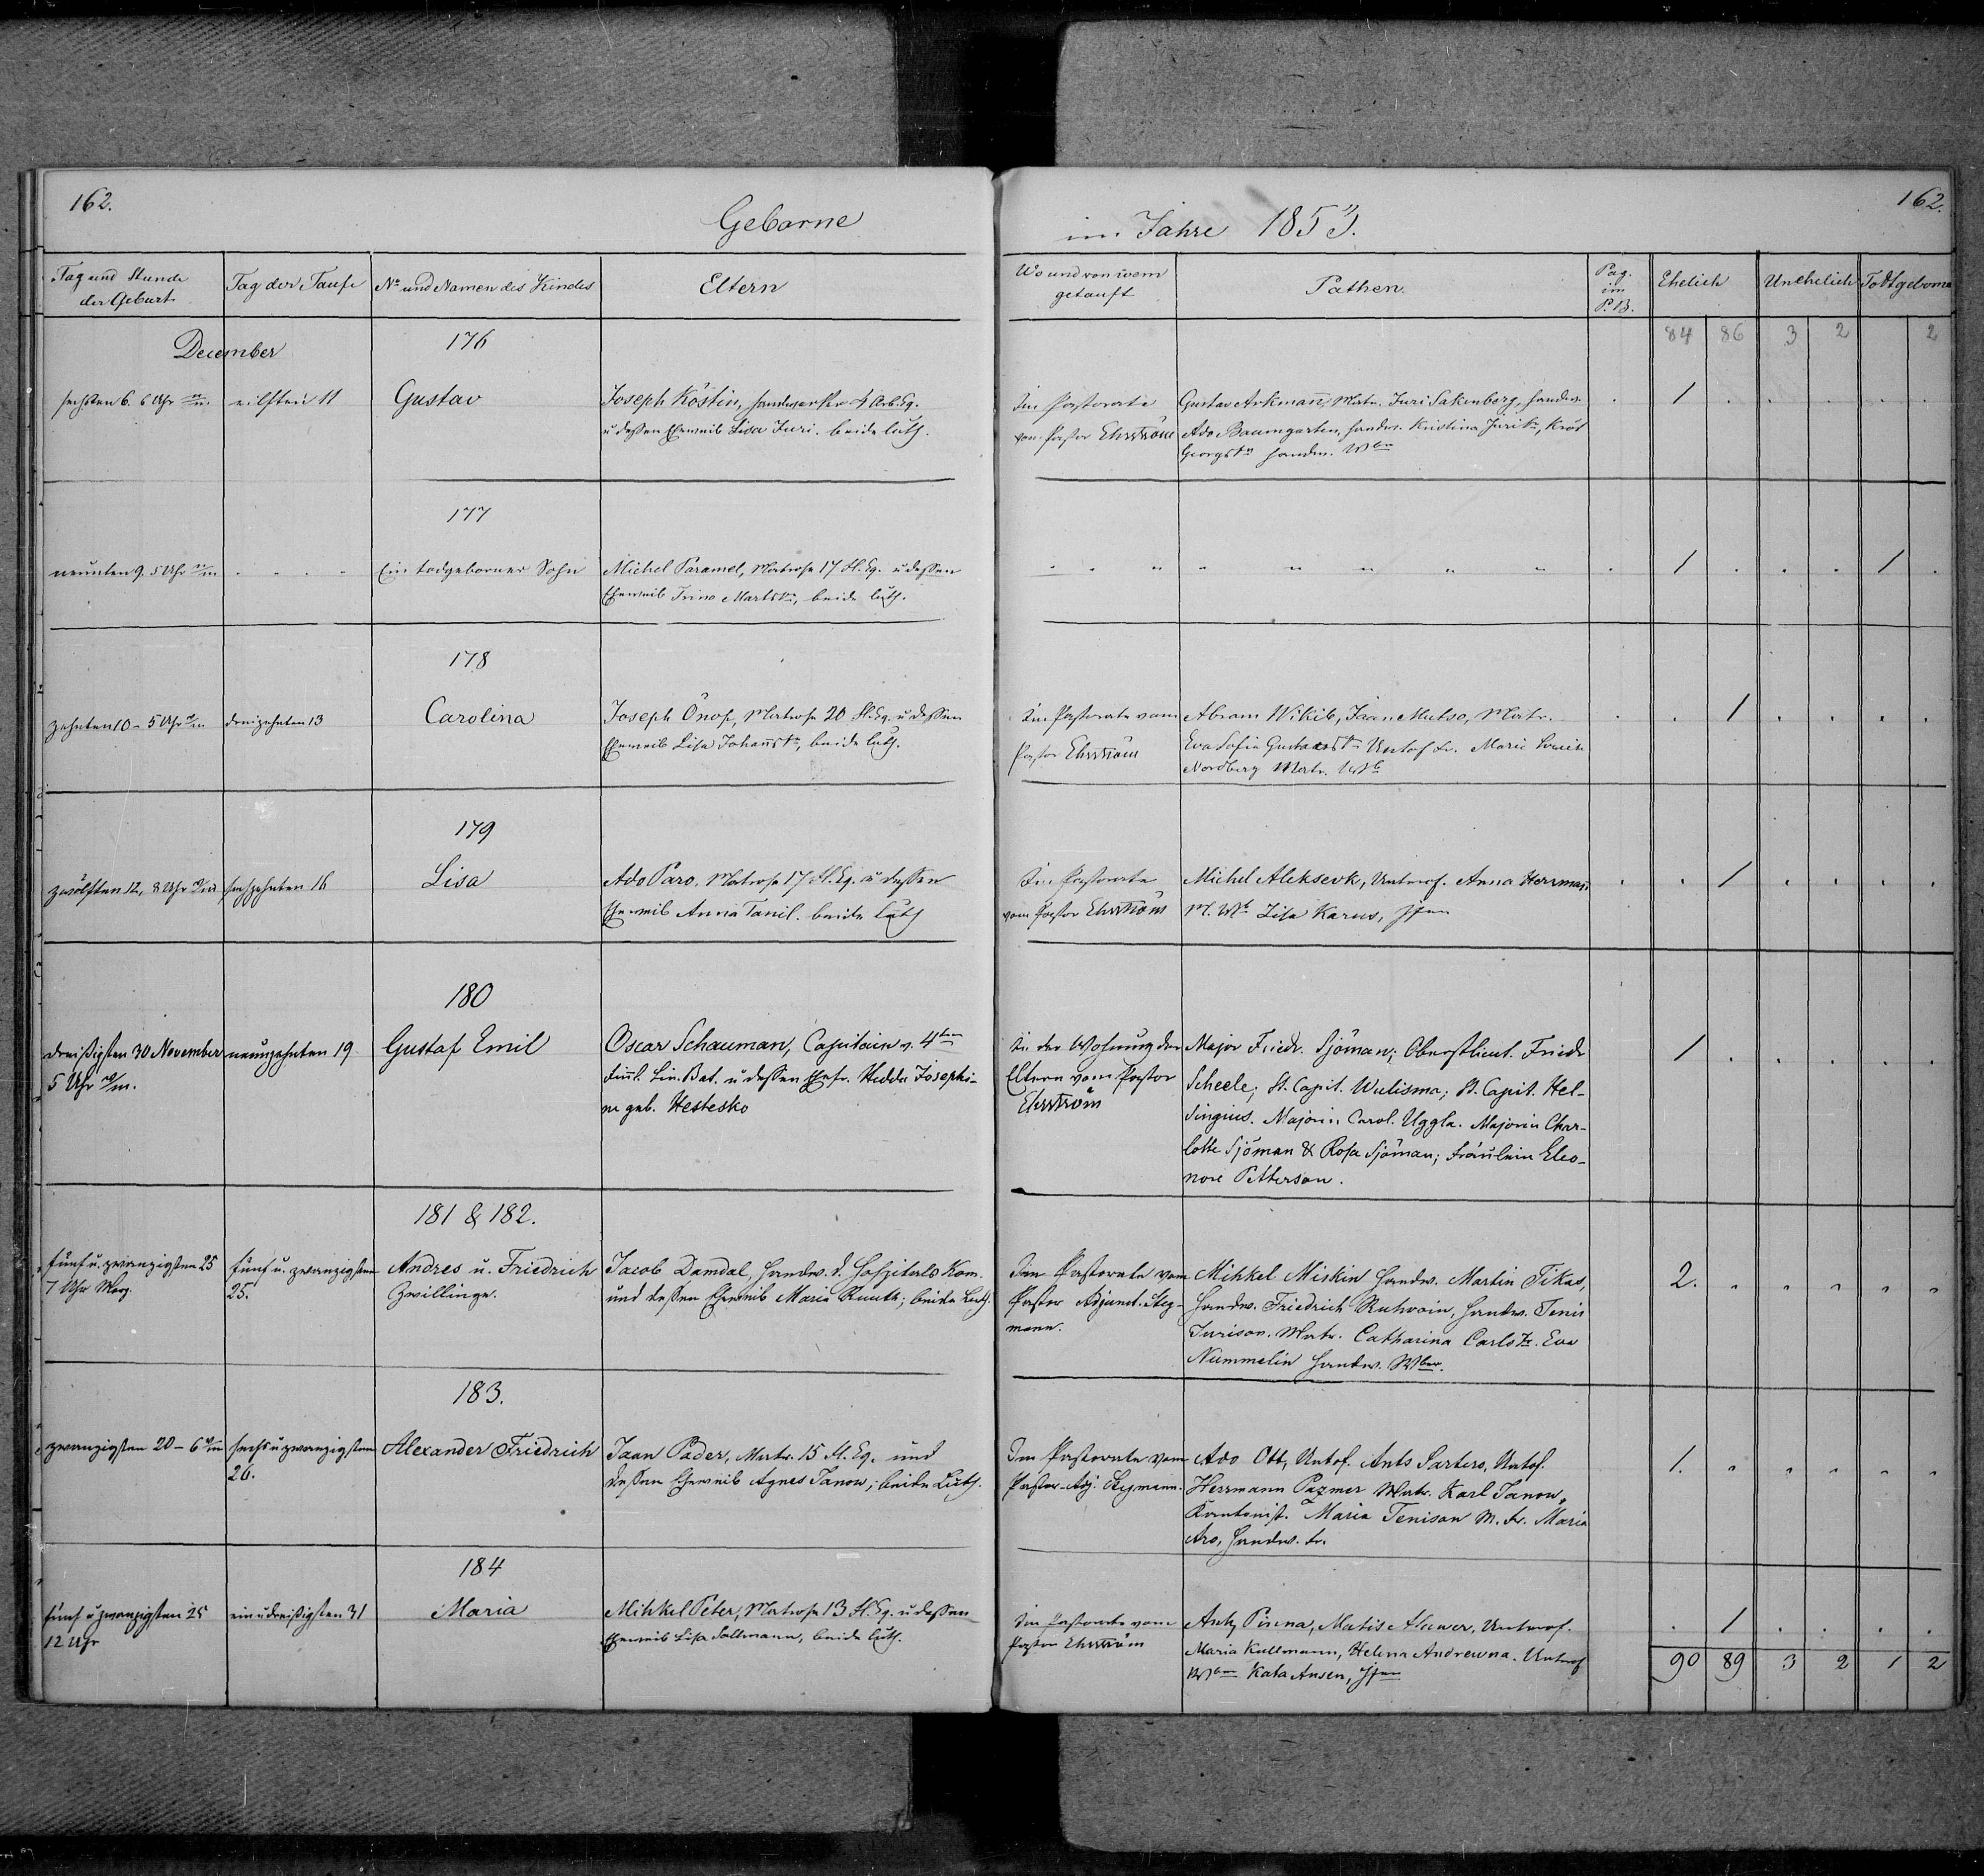 162.
Geborne
im Jahre 1853.
162.
Tag und Stunde der Geburt
Tag der Taufe
No und Namen des Kindes
Eltern
Wo und von wem getauft
Pathen.
Pag. im P.B.
Ehelich
Unehelich
Todtgeborne
84 86 3 2 2
December
176
sechsten 6. 6 Uhr
eilften 11
Gustav
Joseph Köstin, Handwerker 4 Arb. Eq.
u dessen Eheweib Lisa Juri. beide luth.
Im Pastorate
vom Pastor Ehrström
Gustav Arkman, Matr. Juri Sakenberg, Handw.
Ado Baumgarten, Handw. Kristina Juri
Georgstr Handw. Wbr
1
177
neunten 9. 5 Uhr
Ein todgeborner Sohn
Michel Paramel, Matrose 17 Fl. Eq. u dessen
Eheweib Trino Martstr, beide luth.
1 1
178
zehnten 10 - 5 Uhr
dreizehnten 13
Carolina
Joseph Önop, Matrose 20 Fl. Eq. u dessen
Eheweib Lisa Johanstr, beide luth.
Im Pastorate vom
Pastor Ehrström
Abram Wikib, Jaan Mutso, Matr.
Eva Sofia Gustavstr Untof. Fr. Marie Louise
Nordberg Matr. Wb
1
179
zwölften 12, 8 Uhr
sechzehnten 16
Lisa
Ado Paro, Matrose 17 Fl. Eq. u dessen
Eheweib Anna Tanil. beide luth
Im Pastorate
vom Pastor Ehrström
Michel Aleksevk, Unterof. Anna Herrman
M. Wb Lisa Karus, Jfer
1
180
dreißigsten 30 November
5 Uhr
neunzehnten 19
Gustaf Emil
Oscar Schauman, Capitain v. 4ten
Finnl. Lin. Bat. u dessen Ehefr. Hedda Josephi-
ne geb. Hestesko
In der Wohnung der
Eltern vom Pastor
Ehrström
Major Friedr. Sjöman; Oberstlieut. Friedr
Scheele; St. Capit. Wulisma; St. Capit. Hel-
singius. Majorin Carol. Uggla. Majorin Char-
lotte Sjöman & Rosa Sjöman; Fräulein Eleo-
nore Petterson.
1
181 & 182.
fünf u. zwanzigsten 25
7 Uhr Morg.
fünf u. zwanzigsten
25.
Andres u. Friedrich
Zwillinge.
Jacob Damdal, Handw. d. Hospitals Kom.
und dessen Eheweib Maria Ruuth; beide Luth.
Im Pastorate vom
Pastor Adjunct. Steg-
mann.
Mihkel Miskin Handw. Martin Tikas,
Handw. Friedrich Ruhvain, Handw. Tenis
Jurison. Matr. Catharina Carlstr. Eva
Nummelin Handw. Wber.
2.
183.
zwanzigsten 20 - 6
sechs u zwanzigsten
26.
Alexander Friedrich
Jaan Pader, Matr. 15 Fl. Eq. und
dessen Eheweib Agnes Tanow; beide Luth.
Im Pastorate vom
Pastor-Adj. Stegmann.
Ado Ott, Untof. Ants Sarters, Untof.
Herrmann Pazmer Matr. Karl Tanow,
Kantonist. Maria Tenison M. Fr. Maria
Aro, Handw. Fr.
1.
184
fünf u zwanzigsten 25
12 Uhr
ein u dreißigsten 31
Maria
Mihkel Peter, Matrose 13 Fl. Eq. u dessen
Eheweib Lisa Sallmann, beide luth.
Im Pastorate vom
Pastor Ehrström
Ants Pinna, Matis Alawer, Unterof.
Maria Kullmann, Helena Andrewna. Unterof
Wber Kata Ansen, Jfer
1
90 89 3 2 1 2